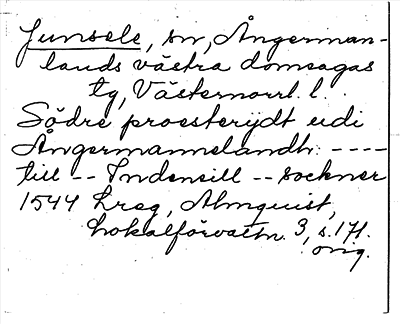 Junsele, sn, Ångerman-
lands västra domsagas
tg, Västernorrl. l.
Södre proesterijdt udi
Ångermannelandh: ----
till -- Indensill -- sockner
1544 hreg, Almquist,
Lokalförvaltn. 3, s. 171.
orig.